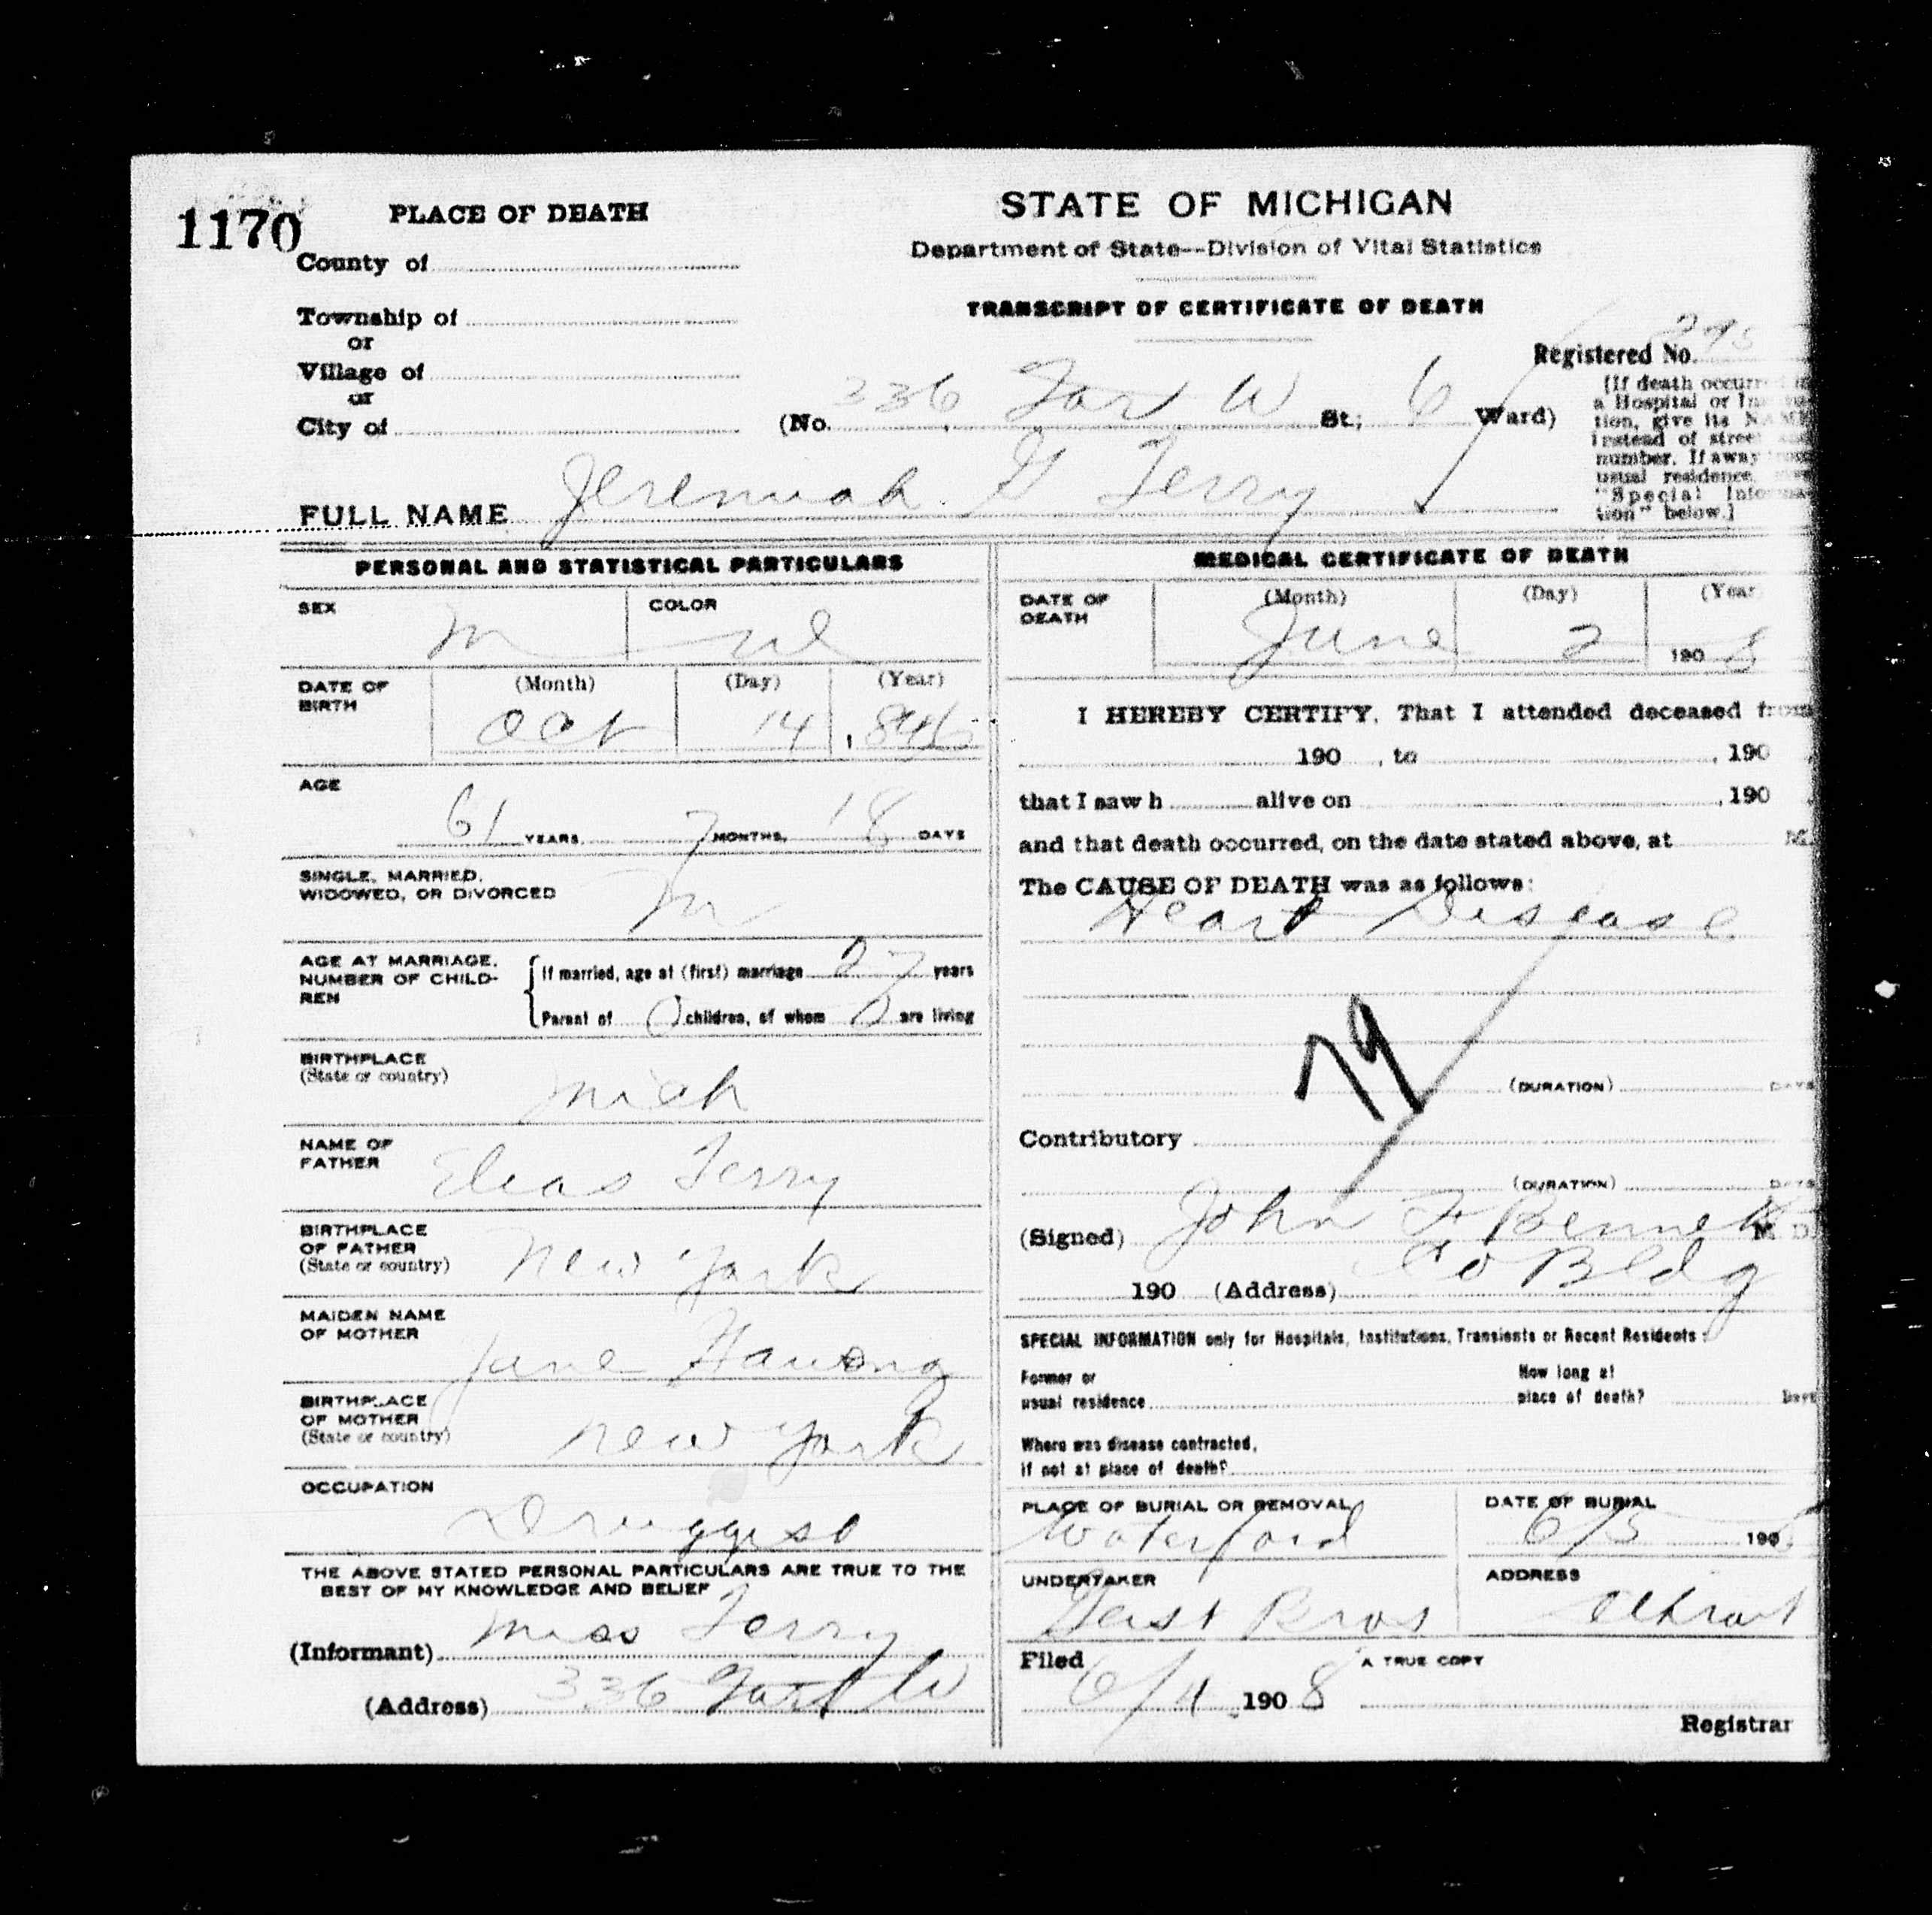 1170
PLACE OF DEATH
County of
Township of
or
Village of
or
City of
STATE OF MICHIGAN
Department of State--Division of Vital Statistics
TRANSCRIPT OF CERTIFICATE OF DEATH
Registered No.
(No. 336 W St.; 6 Ward)
[If death occurred in
a Hospital or Institu-
tion, give its NAME
instead of street and
number. If away from
usual residence, give
"Special Informa-
tion" below.]
FULL NAME Jeremiah G Terry
PERSONAL AND STATISTICAL PARTICULARS
SEX M COLOR
DATE OF BIRTH (Month) Oct (Day) 14 (Year) 1846
AGE
61 YEARS, 7 MONTHS, 18 DAYS
SINGLE, MARRIED,
WIDOWED, OR DIVORCED M
AGE AT MARRIAGE,
NUMBER OF CHILD-
REN
If married, age at (first) marriage 27 years
Parent of 0 children, of whom 0 are living
BIRTHPLACE
(State or country) Mich
NAME OF
FATHER Elias Terry
BIRTHPLACE
OF FATHER
(State or country) New York
MAIDEN NAME
OF MOTHER Jane
BIRTHPLACE
OF MOTHER
(State or country) New York
OCCUPATION
Druggist
THE ABOVE STATED PERSONAL PARTICULARS ARE TRUE TO THE
BEST OF MY KNOWLEDGE AND BELIEF
(Informant) Miss Terry
(Address) 336 W
MEDICAL CERTIFICATE OF DEATH
DATE OF DEATH (Month) June (Day) 2 (Year) 1908
I HEREBY CERTIFY, That I attended deceased from
190 , to , 190
that I saw h alive on , 190
and that death occurred, on the date stated above, at M.
The CAUSE OF DEATH was as follows:
Heart Disease
79
(DURATION) DAYS
Contributory
(DURATION) DAYS
(Signed) John F Bennett M. D.
190 (Address) Co Bldg
SPECIAL INFORMATION only for Hospitals, Institutions, Transients or Recent Residents:
Former or
usual residence
How long at
place of death? Days
Where was disease contracted,
if not at place of death?
PLACE OF BURIAL OR REMOVAL
Waterford
DATE OF BURIAL
6/5 190
UNDERTAKER
Geist Bros
ADDRESS
Detroit
Filed
6/4 1908
A TRUE COPY
Registrar